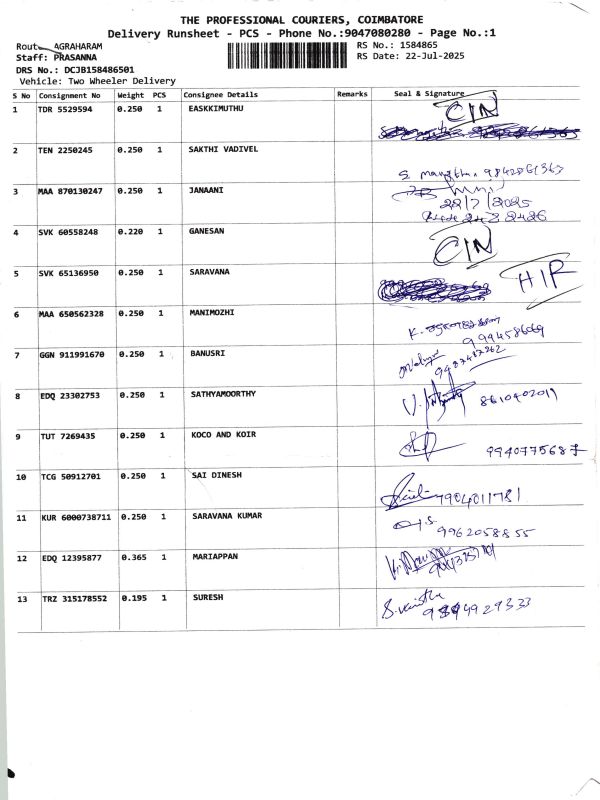 THE PROFESSIONAL COURIERS, COIMBATORE
Delivery Runsheet - PCS - Phone No.:9047080280 - Page No.:1
Rout AGRAHARAM
RS No.: 1584865
Staff: PRASANNA
RS Date: 22-Jul-2025
DRS No.: DCJB158486501
Vehicle: Two Wheeler Delivery
S No Consignment No Weight PCS Consignee Details Remarks Seal & Signature
1 TDR 5529594 0.250 1 EASKKIMUTHU CIN
2 TEN 2250245 0.250 1 SAKTHI VADIVEL
S.
3 MAA 870130247 0.250 1 JANAANI
22/7/2025
4 SVK 60558248 0.220 1 GANESAN CIN
5 SVK 65136950 0.250 1 SARAVANA
6 MAA 650562328 0.250 1 MANIMOZHI
K.
7 GGN 911991670 0.250 1 BANUSRI
8 EDQ 23302753 0.250 1 SATHYAMOORTHY 8610402011
9 TUT 7269435 0.250 1 KOCO AND KOIR
9940775687
10 TCG 50912701 0.250 1 SAI DINESH
7904011781
11 KUR 6000738711 0.250 1 SARAVANA KUMAR
9962058855
12 EDQ 12395877 0.365 1 MARIAPPAN
13 TRZ 315178552 0.195 1 SURESH